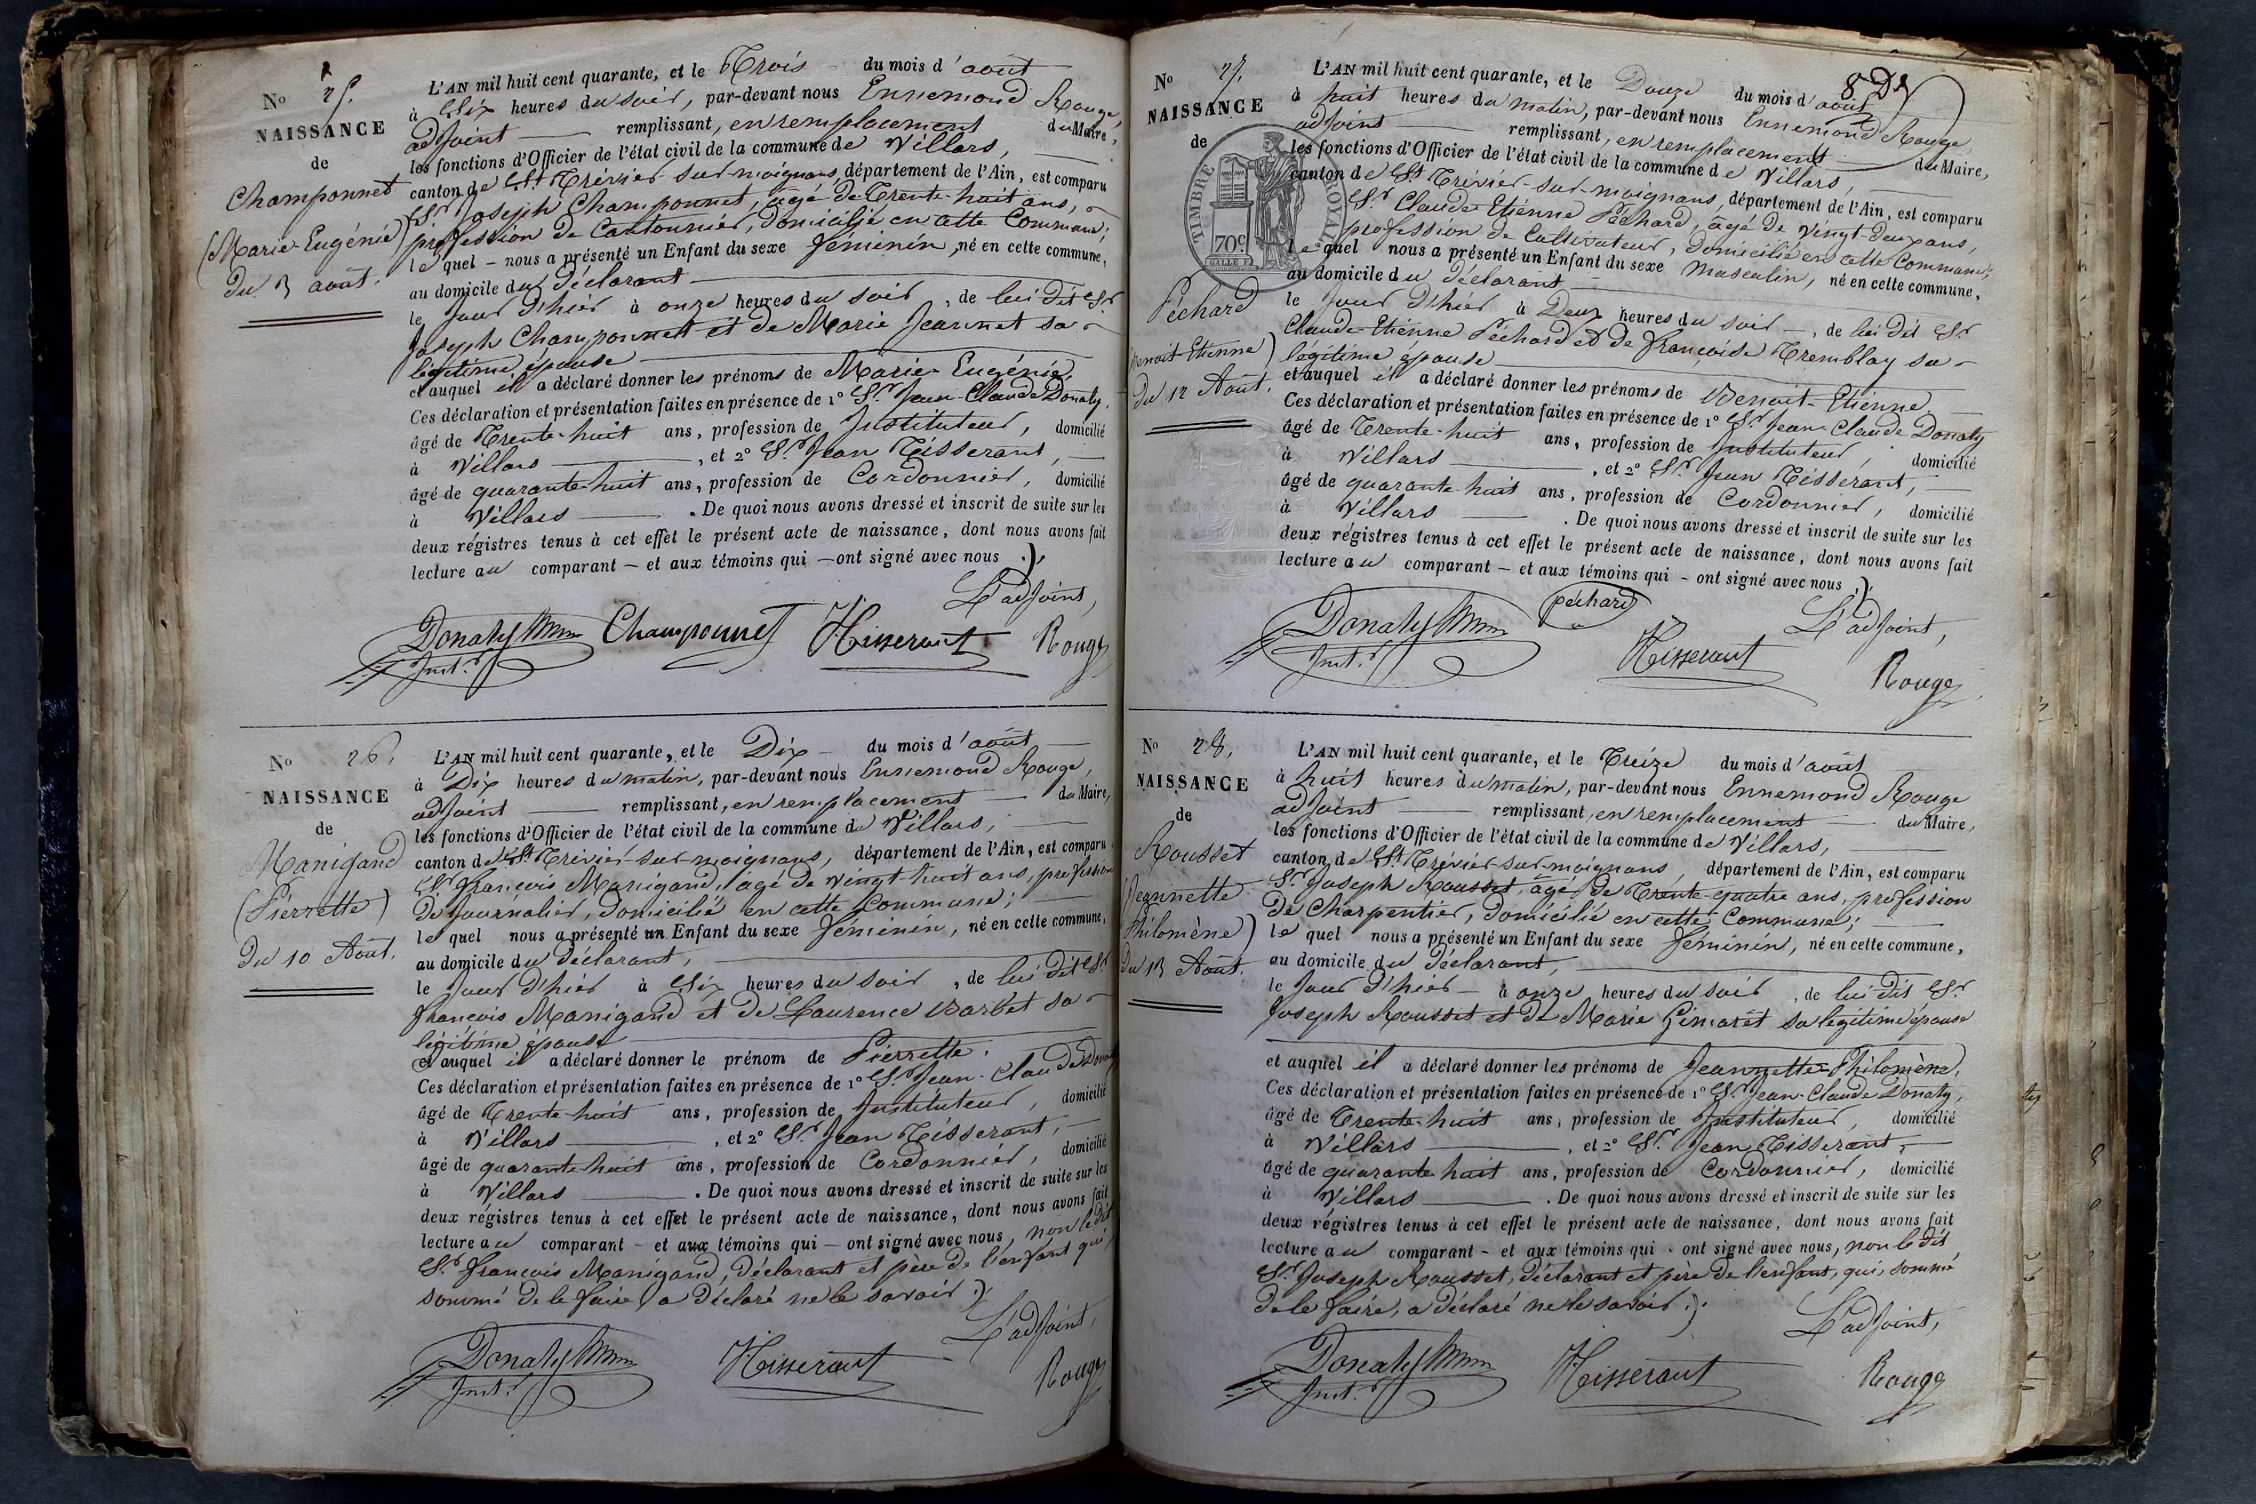 No 25.
NAISSANCE
de
Champonnet
(Marie-Eugénie)
du 3 août.
L'AN mil huit cent quarante, et le Trois du mois d'août
à Six heures du soir, par-devant nous Ennemond Rouge,
adjoint remplissant, en remplacement du Maire,
les fonctions d'Officier de l'état civil de la commune de Villars,
canton de St Trévier-sur-moignans, département de l'Ain, est comparu
Sr Joseph Champonnet, âgé de Trente-huit ans,
profession de Cantonnier, domicilié en cette Commune;
lequel nous a présenté un Enfant du sexe féminin, né en cette commune,
au domicile du déclarant
le jour d'hier à onze heures du soir, de lui dit Sr
Joseph Champonnet et de Marie Jeannet sa
légitime épouse
et auquel il a déclaré donner les prénoms de Marie-Eugénie.
Ces déclaration et présentation faites en présence de 1° Sr Jean-Claude Donaty,
âgé de Trente-huit ans, profession de Instituteur, domicilié
à Villars, et 2° Sr Jean Tisserant,
âgé de quarante-huit ans, profession de Cordonnier, domicilié
à Villars. De quoi nous avons dressé et inscrit de suite sur les
deux régistres tenus à cet effet le présent acte de naissance, dont nous avons fait
lecture au comparant – et aux témoins qui – ont signé avec nous.
L'adjoint,
Donaty Champonnet Tisserant Rouge
Inst.r
No 26.
NAISSANCE
de
Manigand
(Pierrette)
du 10 Août.
L'AN mil huit cent quarante, et le Dix du mois d'août
à Dix heures du matin, par-devant nous Ennemond Rouge,
adjoint remplissant, en remplacement du Maire,
les fonctions d'Officier de l'état civil de la commune de Villars,
canton de St Trévier-sur-moignans, département de l'Ain, est comparu
Sr françois Manigand, âgé de vingt huit ans, profession
de journalier, domicilié en cette Commune;
lequel nous a présenté un Enfant du sexe féminin, né en cette commune,
au domicile du déclarant,
le jour d'hier à Six heures du soir, de lui dit Sr
françois Manigand et de Laurence Barbet sa
légitime épouse
et auquel il a déclaré donner le prénom de Pierrette.
Ces déclaration et présentation faites en présence de 1° Sr Jean-Claude Donaty
âgé de Trente-huit ans, profession de Instituteur, domicilié
à Villars, et 2° Sr Jean Tisserant,
âgé de quarante-huit ans, profession de Cordonnier, domicilié
à Villars. De quoi nous avons dressé et inscrit de suite sur les
deux régistres tenus à cet effet le présent acte de naissance, dont nous avons fait
lecture au comparant – et aux témoins qui – ont signé avec nous, non le dit
Sr françois Manigand, déclarant et père de l'enfant qui,
sommé de le faire, a déclaré ne le savoir.
L'adjoint,
Donaty Tisserant Rouge
Inst.r
8
No 27.
NAISSANCE
de
TIMBRE ROYAL
70c
Péchard
(Benoit-Etienne)
du 12 Août.
L'AN mil huit cent quarante, et le Douze du mois d'août
à huit heures du matin, par-devant nous Ennemond Rouge,
adjoint remplissant, en remplacement du Maire,
les fonctions d'Officier de l'état civil de la commune de Villars,
canton de St Trévier-sur-moignans, département de l'Ain, est comparu
Sr Claude-Etienne Péchard, âgé de vingt-deux ans,
profession de Cultivateur, domicilié en cette Commune;
lequel nous a présenté un Enfant du sexe masculin, né en cette commune,
au domicile du déclarant
le jour d'hier à Deux heures du soir –, de lui dit Sr
Claude-Etienne Péchard et de françoise Tremblay sa
légitime épouse
et auquel il a déclaré donner les prénoms de Benoit-Etienne.
Ces déclaration et présentation faites en présence de 1° Sr Jean-Claude Donaty
âgé de Trente-huit ans, profession de Instituteur, domicilié
à Villars, et 2° Sr Jean Tisserant,
âgé de quarante-huit ans, profession de Cordonnier, domicilié
à Villars. De quoi nous avons dressé et inscrit de suite sur les
deux régistres tenus à cet effet le présent acte de naissance, dont nous avons fait
lecture au comparant – et aux témoins qui – ont signé avec nous.
péchard L'adjoint,
Donaty Tisserant Rouge
Inst.r
No 28.
NAISSANCE
de
Rousset
(Jeannette
Philomène)
du 13 Août.
L'AN mil huit cent quarante, et le Treize du mois d'août
à huit heures du matin, par-devant nous Ennemond Rouge
adjoint remplissant, en remplacement du Maire,
les fonctions d'Officier de l'état civil de la commune de Villars,
canton de St Trévier-sur-moignans, département de l'Ain, est comparu
Sr Joseph Rousset, âgé de Trente-quatre ans, profession
de Charpentier, domicilié en cette Commune;
lequel nous a présenté un Enfant du sexe féminin, né en cette commune,
au domicile du déclarant,
le jour d'hier – à onze heures du soir, de lui dit Sr
Joseph Rousset et de Marie Gimarêt sa légitime épouse
et auquel il a déclaré donner les prénoms de Jeannette-Philomène.
Ces déclaration et présentation faites en présence de 1° Sr Jean-Claude Donaty,
âgé de Trente-huit ans, profession de Instituteur, domicilié
à Villars, et 2° Sr Jean Tisserant,
âgé de quarante-huit ans, profession de Cordonnier, domicilié
à Villars. De quoi nous avons dressé et inscrit de suite sur les
deux régistres tenus à cet effet le présent acte de naissance, dont nous avons fait
lecture au comparant – et aux témoins qui – ont signé avec nous, non le dit
Sr Joseph Rousset, déclarant et père de l'enfant, qui, sommé
de le faire, a déclaré ne le savoir.
L'adjoint,
Donaty Tisserant Rouge
Inst.r